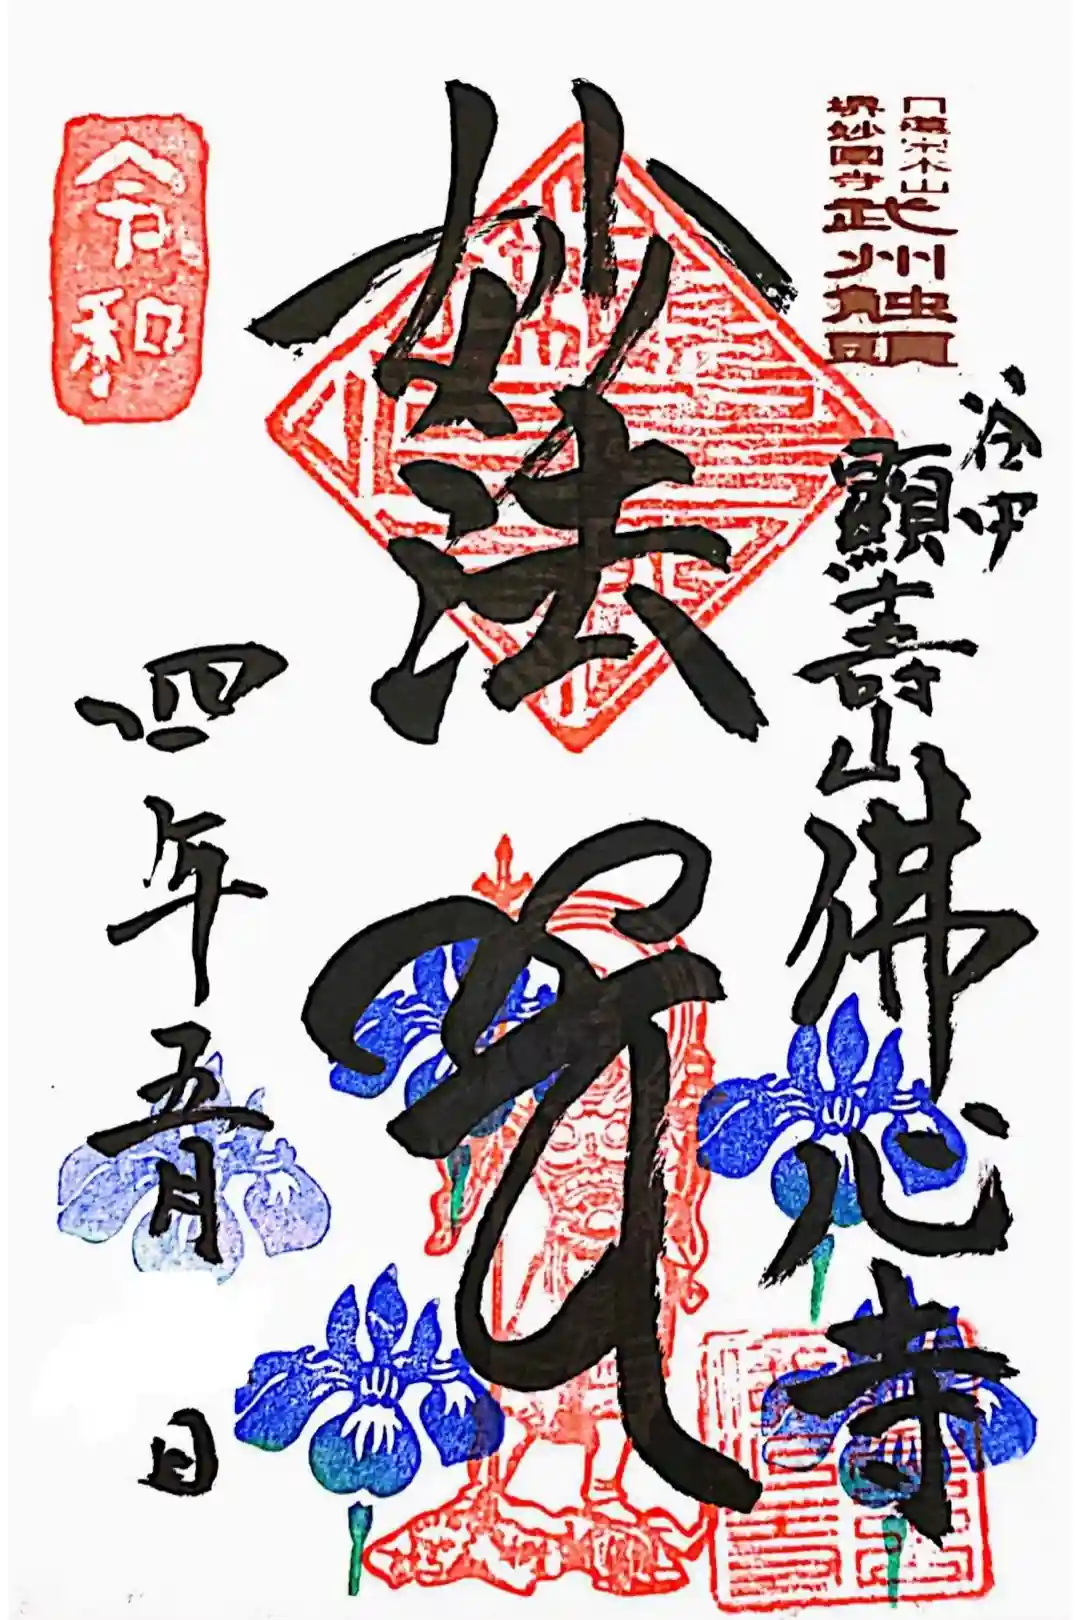 日蓮宗本山
堺妙國寺
武州触頭
谷中
顯壽山
佛心寺
妙法
令和
四年
五月
日